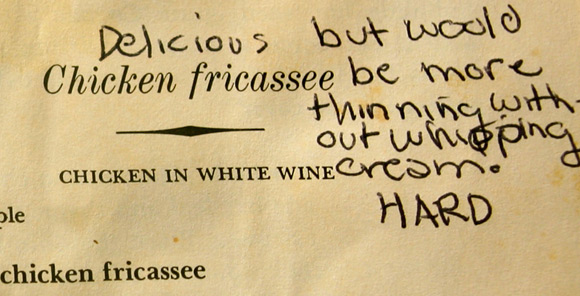 Delicious but would
Chicken fricassee be more
thinning with-
out whipping
CHICKEN IN WHITE WINE cream.
HARD
ple
chicken fricassee